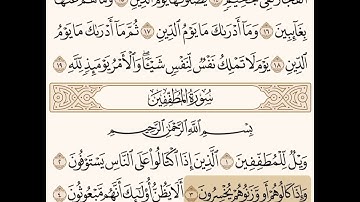 ٱلْفُجَّارَ لَفِى جَحِيمٍ ١٤ يَصْلَوْنَهَا يَوْمَ ٱلدِّينِ ١٥ وَمَا هُمْ عَنْهَا
بِغَآئِبِينَ ١٦ وَمَآ أَدْرَىٰكَ مَا يَوْمُ ٱلدِّينِ ١٧ ثُمَّ مَآ أَدْرَىٰكَ مَا يَوْمُ
ٱلدِّينِ ١٨ يَوْمَ لَا تَمْلِكُ نَفْسٌ لِّنَفْسٍ شَيْـًٔا ۖ وَٱلْأَمْرُ يَوْمَئِذٍ لِّلَّهِ ١٩
سُورَةُ ٱلْمُطَفِّفِينَ
بِسْمِ ٱللَّهِ ٱلرَّحْمَٰنِ ٱلرَّحِيمِ
وَيْلٌ لِّلْمُطَفِّفِينَ ١ ٱلَّذِينَ إِذَا ٱكْتَالُوا۟ عَلَى ٱلنَّاسِ يَسْتَوْفُونَ ٢
وَإِذَا كَالُوهُمْ أَو وَّزَنُوهُمْ يُخْسِرُونَ ٣ أَلَا يَظُنُّ أُو۟لَٰٓئِكَ أَنَّهُم مَّبْعُوثُونَ ٤